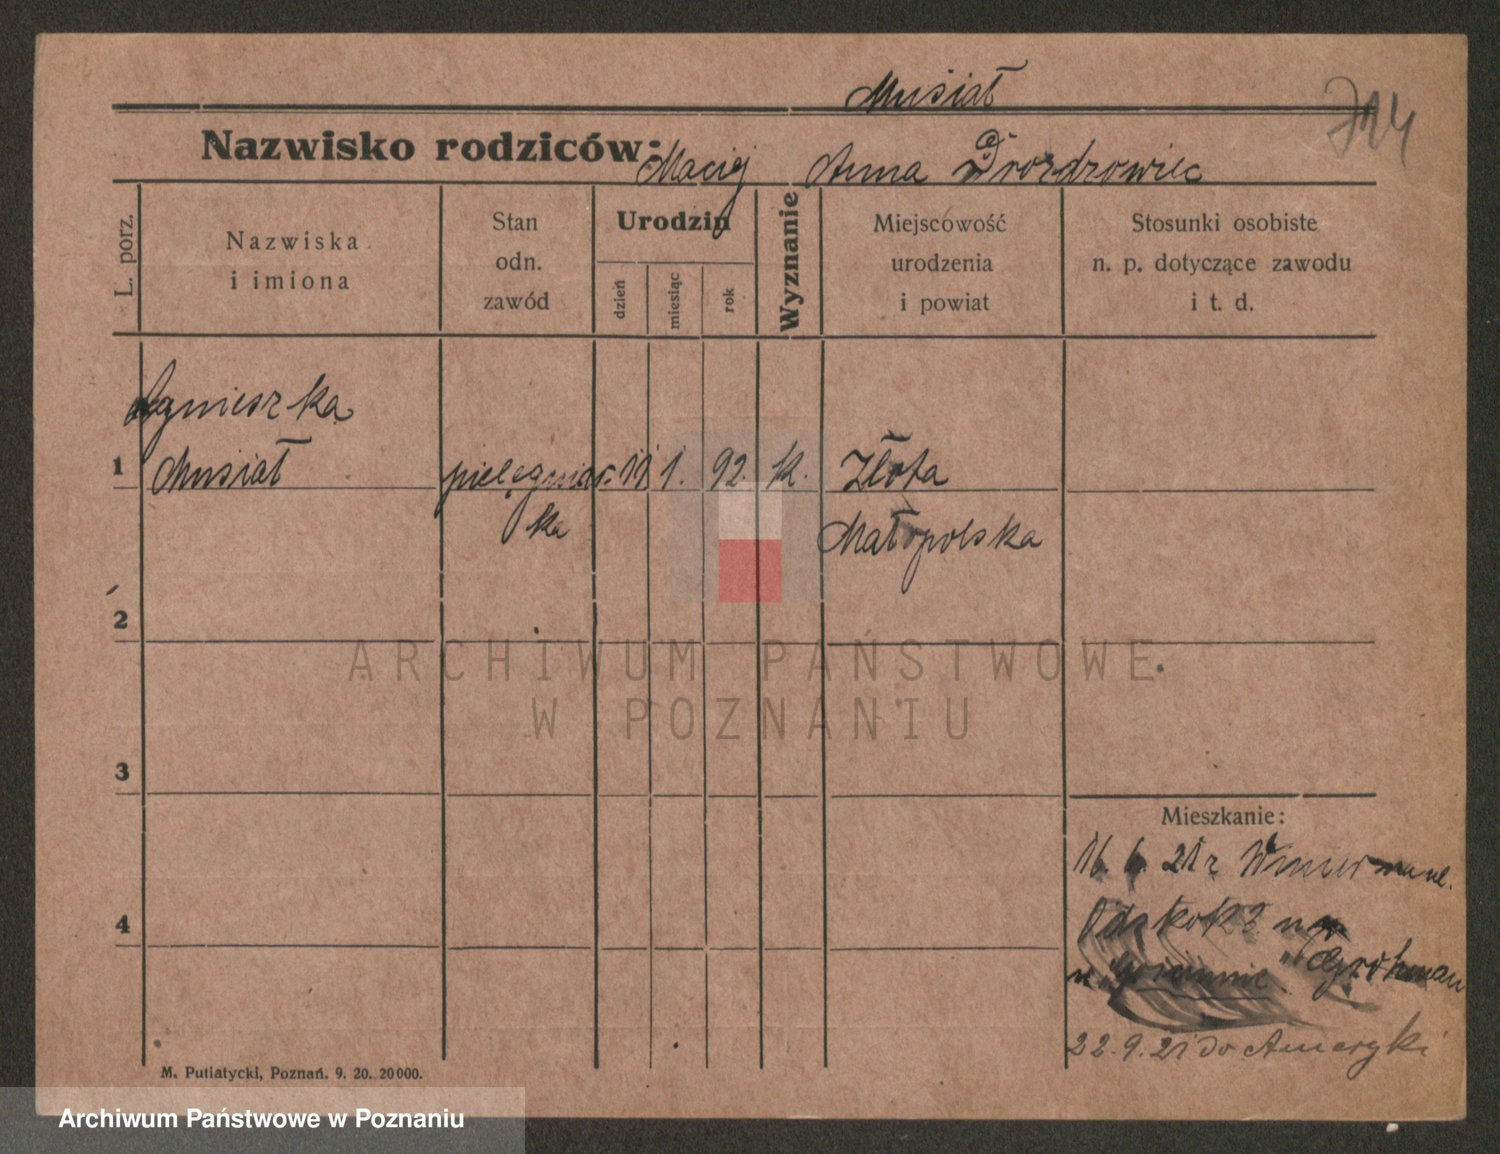 Musiał
724
Nazwisko rodziców:
Maciej Anna Drozdrowiec
L. porz.
Nazwiska
i imiona
Stan
odn.
zawód
Urodzin
dzień
miesiąc
rok
Wyznanie
Miejscowość
urodzenia
i powiat
Stosunki osobiste
n. p. dotyczące zawodu
i t. d.
Agnieszka
1 Musiał pielęgniar- 11 1. 92. k. Złota
ka Małopolska
2
ARCHIWUM PAŃSTWOWE
W POZNANIU
3
Mieszkanie:
16. 6. 21 r ul.
4
Grotman
22. 9. 21 do Ameryki
M. Putiatycki, Poznań. 9. 20. 20000.
Archiwum Państwowe w Poznaniu